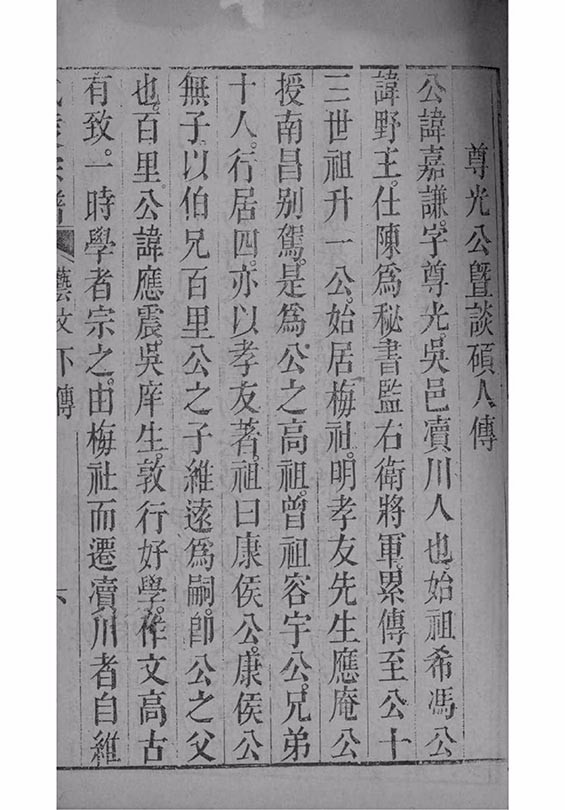 尊光公暨談碩人傳
公諱嘉謙。字尊光。吳邑瀆川人也。始祖希馮公
諱野王。仕陳爲秘書監右衛將軍。累傳至公十
三世祖升一公。始居梅社。明孝友先生應庵公
授南昌别駕。是爲公之高祖。曾祖容宇公。兄弟
十人。行居四。亦以孝友著。祖曰康侯公。康侯公
無子。以伯兄百里公之子維遠爲嗣。卽公之父
也。百里公諱應震。吳庠生。敦行好學。作文高古
有致。一時學者宗之。由梅社而遷瀆川者自維
宗譜 藝文下傳 六